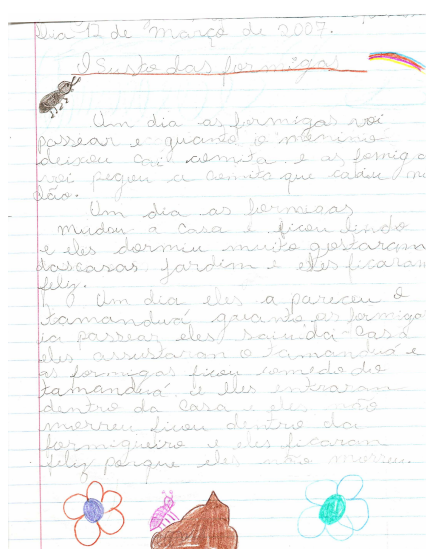 Dia 12 de Março de 2007.
O Susto das formigas
Um dia as formigas voi
passear e quanto o menino
deixou cai comita e as fomiga
voi pegou a comita que cabiu no
são.
Um dia as formigas
mudou a casa e ficou lindo
e eles dormiu muito gostaram
das casas, jardim e eles ficaram
feliz.
Um dia eles a pareceu o
tamanduá quanto as formiga
ia passear eles saiu da casa
eles assustaram o tamanduá e
as formigas ficou com edo do
tamanduá e eles entraram
dentro da casa e eles não
morreu, ficou dentro da
formigueiro e eles ficaram
feliz porque eles não morreu.